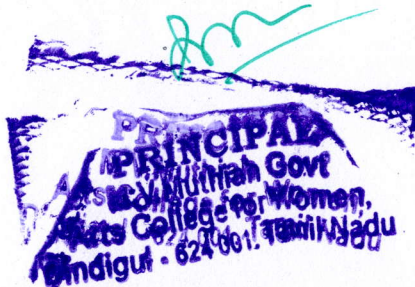 PRINCIPAL
Muthiah Govt
Arts College for Women,
Dindigul - 624 001. Tamil Nadu